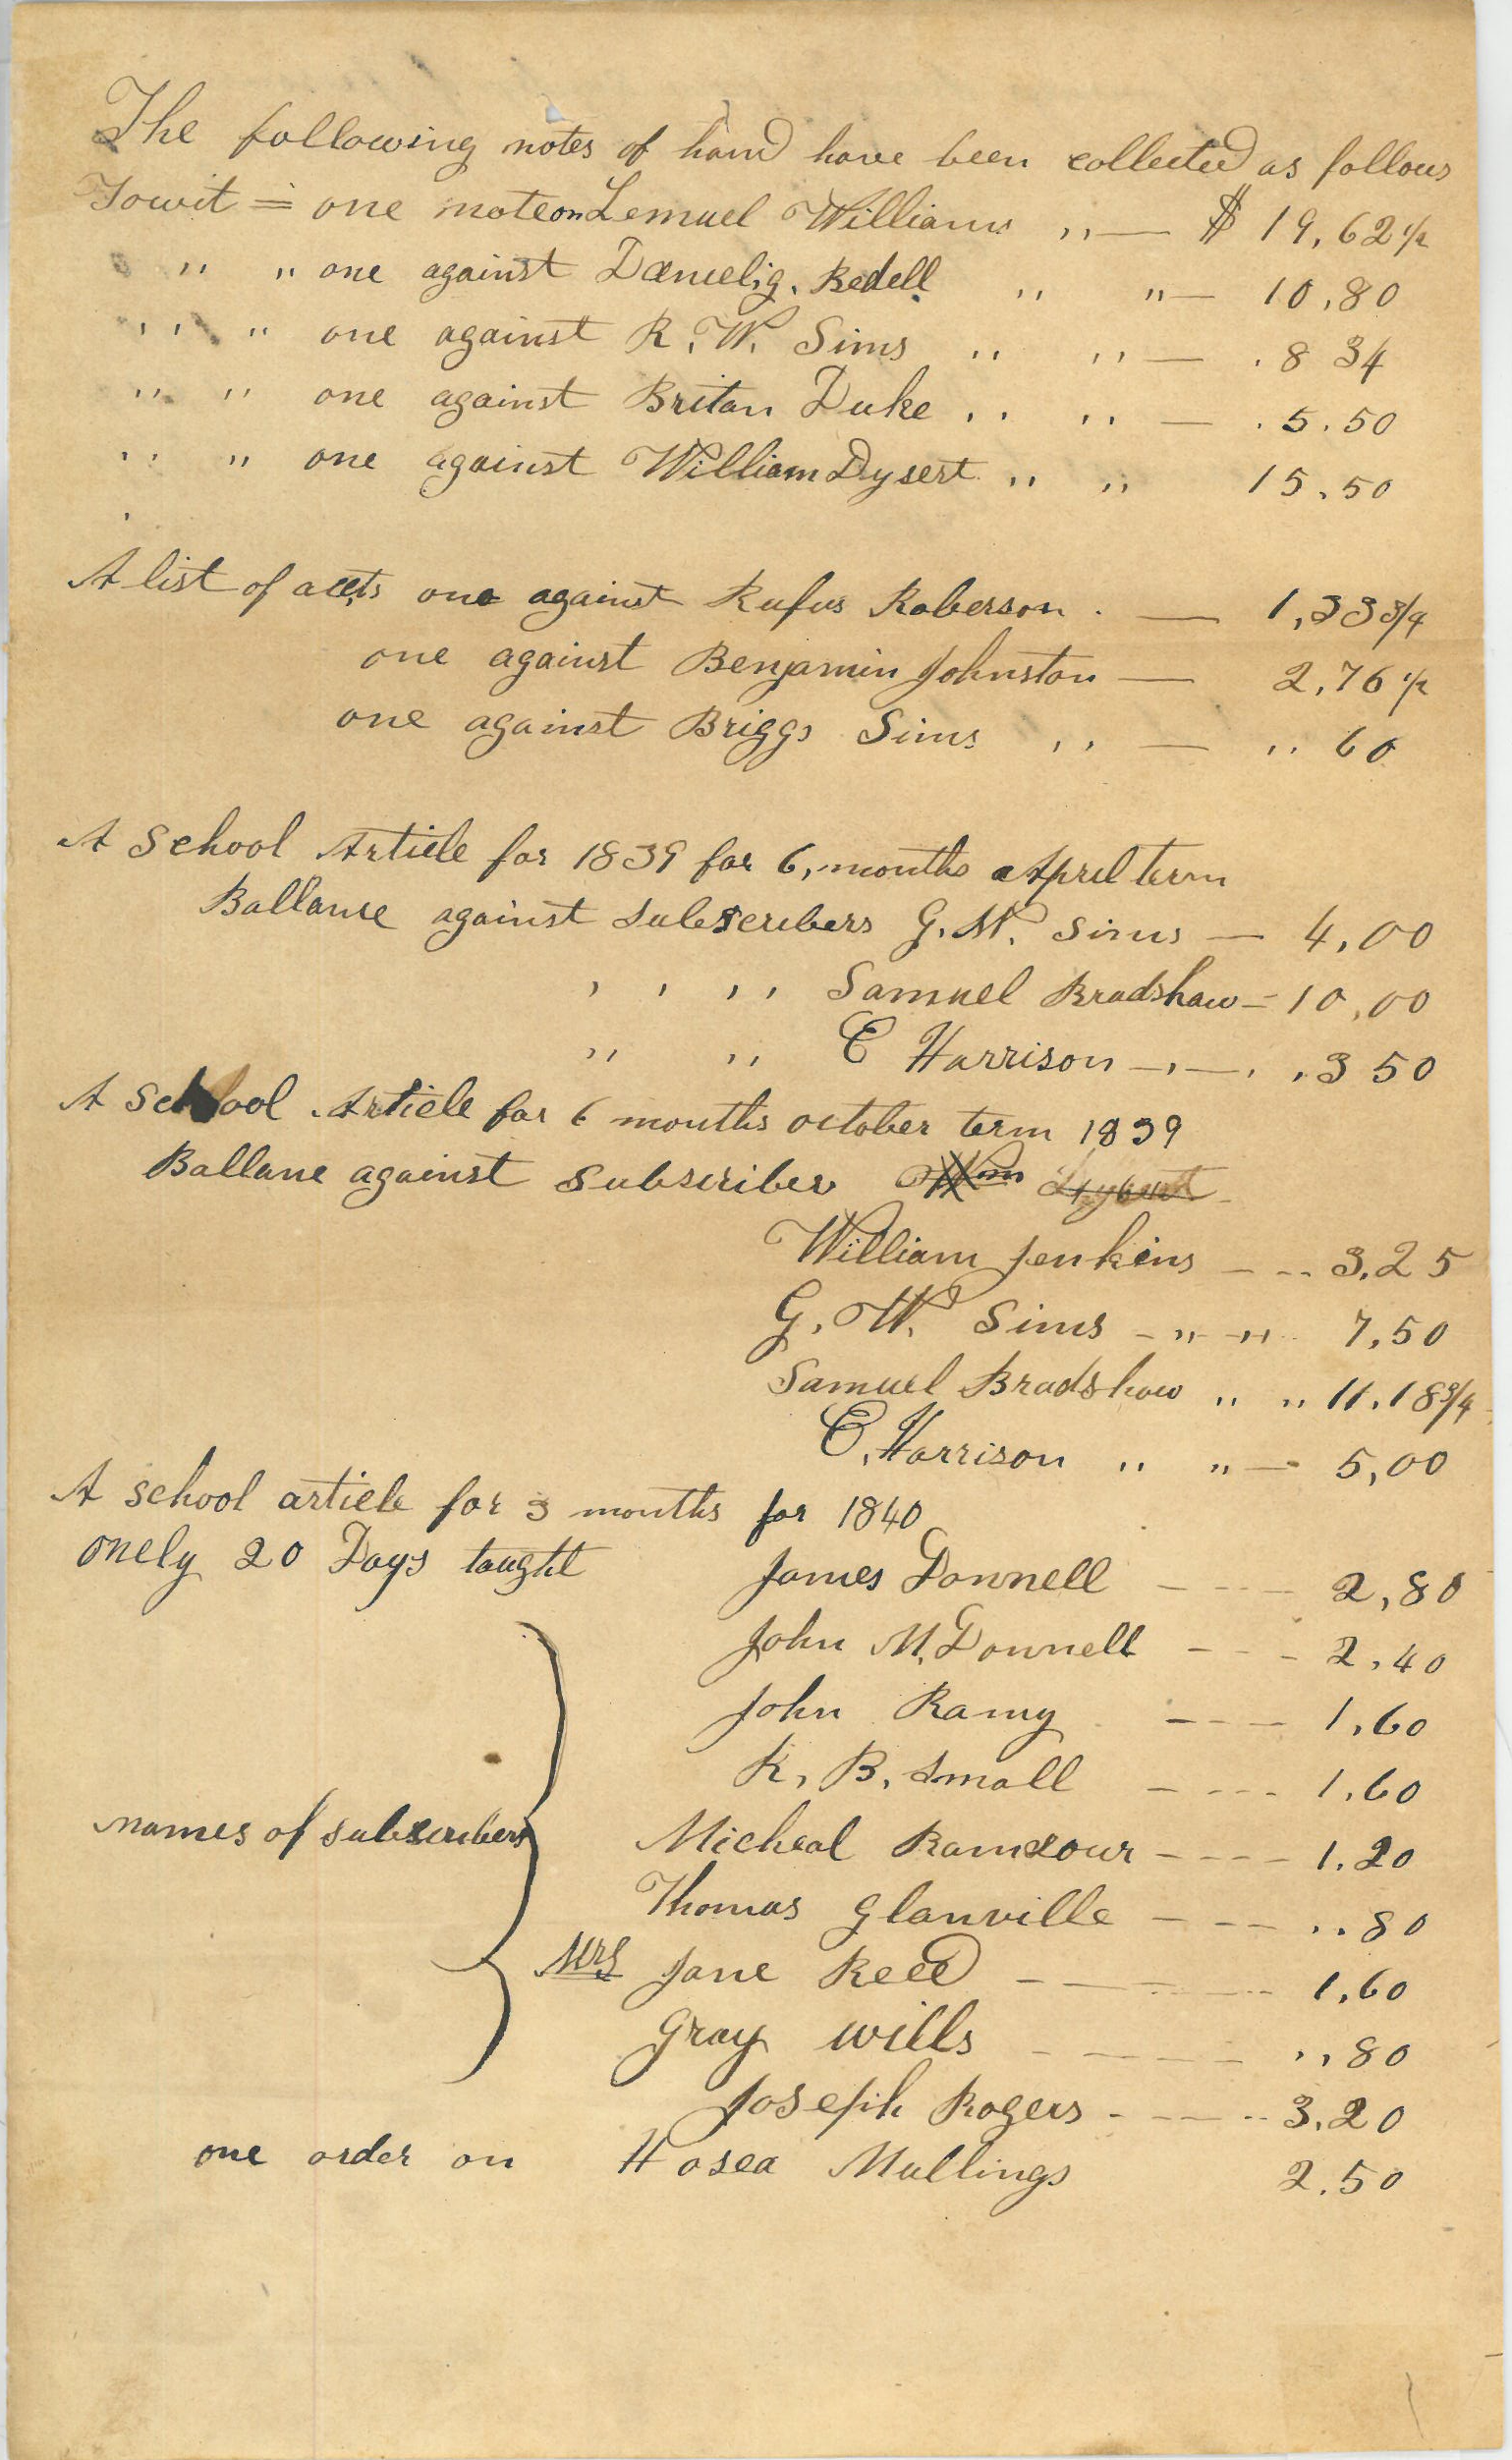 The following notes of hand have been collected as follows
Towit = one note on Lemuel Williams ,, — $ 19,62 1/2
" " one against Daniel, g. Bedell " " — 10,80
" " one against R. W. Sims " " — . 8 34
" " one against Britan Duke " " — . 5.50
" " one against William Dysert " " 15,50
A list of accts one against Rufus Roberson . — 1,33 3/4
one against Benjamin Johnston — 2,76 1/2
one against Briggs Sims ,, — ,, 60
A School Article for 1839 for 6, months April term
Ballance against Subscribers G. W. Sims — 4,00
, , , , Samuel Bradshaw — 10,00
,, ,, C Harrison — , — , , 3 50
A School Article for 6 months october term 1839
Ballane against Subscriber Wm Dysert
William Jenkins — -- 3.25
G. W. Sims - " - " 7,50
Samuel Bradshaw " " 11.18 3/4
C. Harrison " " — 5,00
A school article for 3 months for 1840
onely 20 Days taught James Donnell ---- 2,80
John M. Donnell - - - 2,40
John Ramy --- 1,60
R, B, Small ---- 1,60
names of subscribers Micheal Ramsour ---- 1.20
Thomas Glanville --- ,, 80
Mrs Jane Reed ---- 1,60
Gray wills ---- ,, 80
Joseph Rogers ---- 3.20
one order on Hosea Mullings 2.50